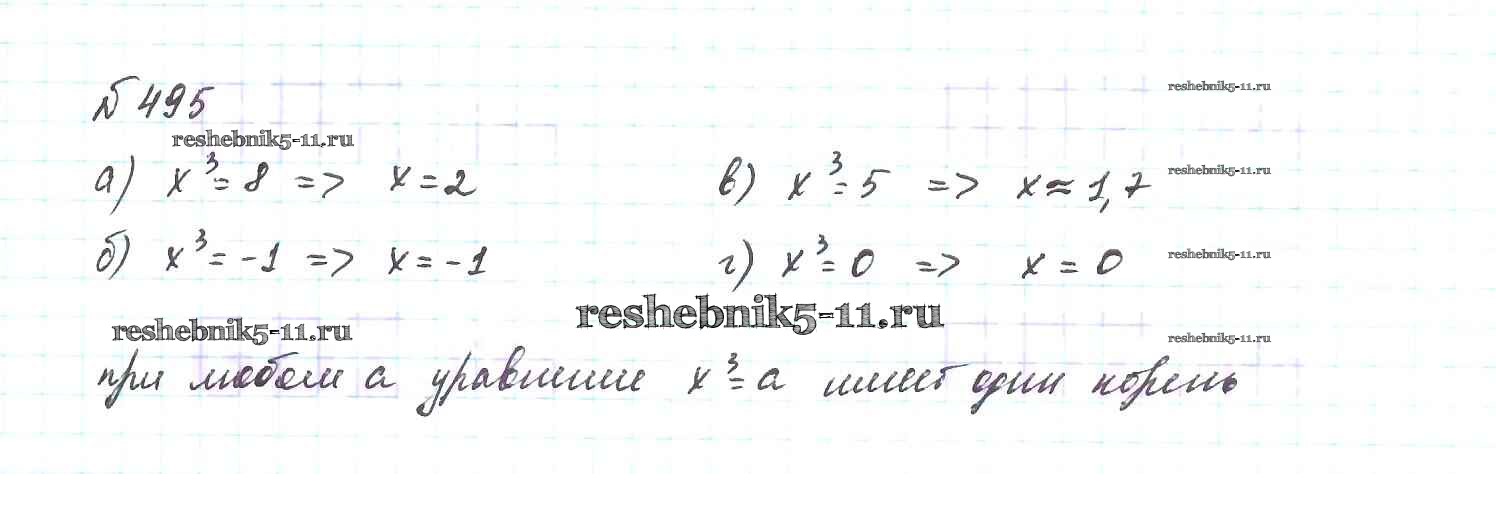 № 495
reshebnik5-11.ru
reshebnik5-11.ru
а) x³ = 8 => x = 2 в) x³ = 5 => x ≈ 1,7
reshebnik5-11.ru
б) x³ = -1 => x = -1 г) x³ = 0 => x = 0
reshebnik5-11.ru
reshebnik5-11.ru
reshebnik5-11.ru
reshebnik5-11.ru
при любом a уравнение x³ = a имеет один корень